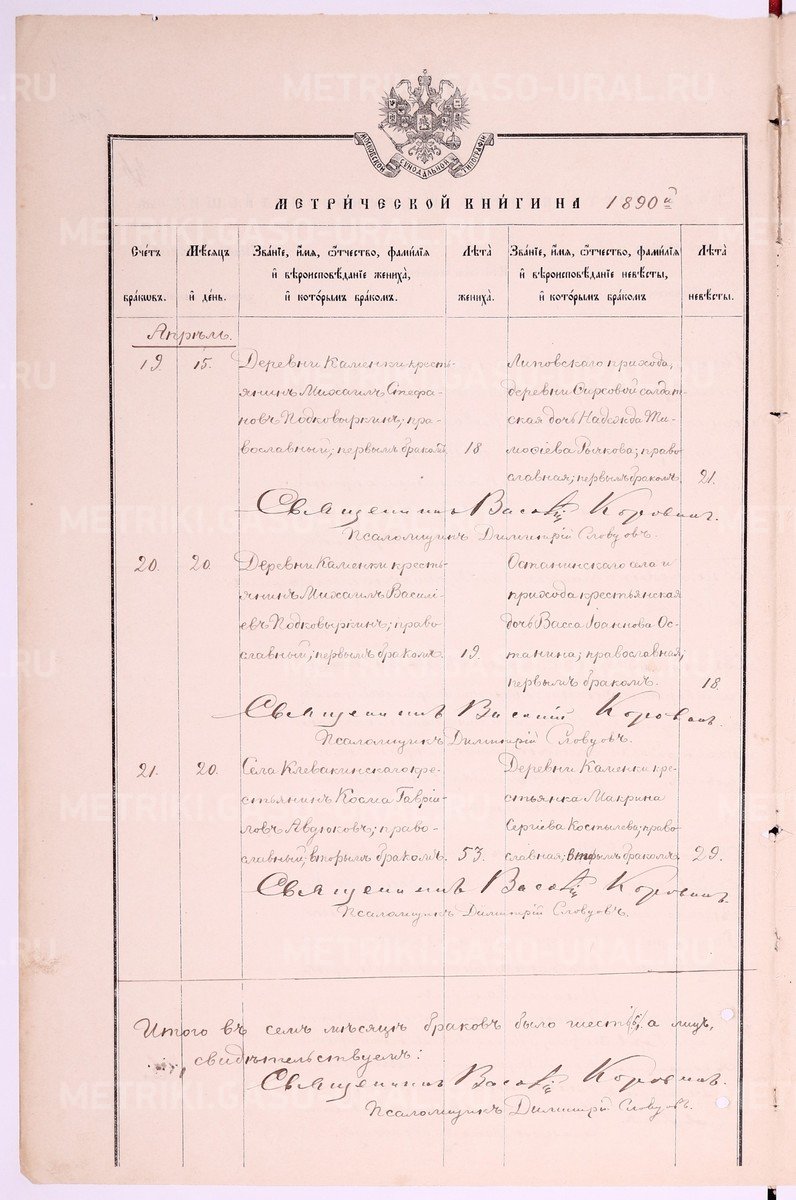 СИНОДАЛЬНОЙ ТИПОГРАФІИ
МЕТРИ́ЧЕСКОЙ КНИ́ГИ НА 1890й
Счетъ браковъ.
Мѣсяцъ и день.
Званіе, имя, отчество, фамилія и вѣроисповѣданіе жениха, и которымъ бракомъ.
Лѣта жениха.
Званіе, имя, отчество, фамилія и вѣроисповѣданіе невѣсты, и которымъ бракомъ
Лѣта невѣсты.
Апрѣль.
19 15. Деревни Каменки кресть-
янинъ Михаилъ Стефа-
новъ Подковыркинъ; пра-
вославный; первымъ бракомъ 18
Липовскаго прихода,
деревни Сирсовой солдат-
ская дочь Надежда Ти-
моѳіева Рычкова; право-
славная; первымъ бракомъ 21.
Священникъ Василій Коровинъ.
Псаломщикъ Димитрій Словцовъ.
20. 20. Деревни Каменки кресть-
янинъ Михаилъ Василі-
евъ Подковыркинъ; право-
славный; первымъ бракомъ. 19.
Останинскаго села и
прихода крестьянская
дочь Васса Іоаннова Ос-
танина; православная;
первымъ бракомъ. 18.
Священникъ Василій Коровинъ.
Псаломщикъ Димитрій Словцовъ.
21. 20. Села Клевакинскаго кре-
стьянинъ Косма Гаврій-
ловъ Авдюковъ; право-
славный; вторымъ бракомъ. 53.
Деревни Каменки кре-
стьянка Макрина
Сергіева Костылева; право-
славная; вторымъ бракомъ 29.
Священникъ Василій Коровинъ.
Псаломщикъ Димитрій Словцовъ.
Итого въ семъ мѣсяцѣ браковъ было шесть (6), а лицъ,
свидѣтельствуемъ:
Священникъ Василій Коровинъ.
Псаломщикъ Димитрій Словцовъ.
METRIKI.GASO-URAL.RU